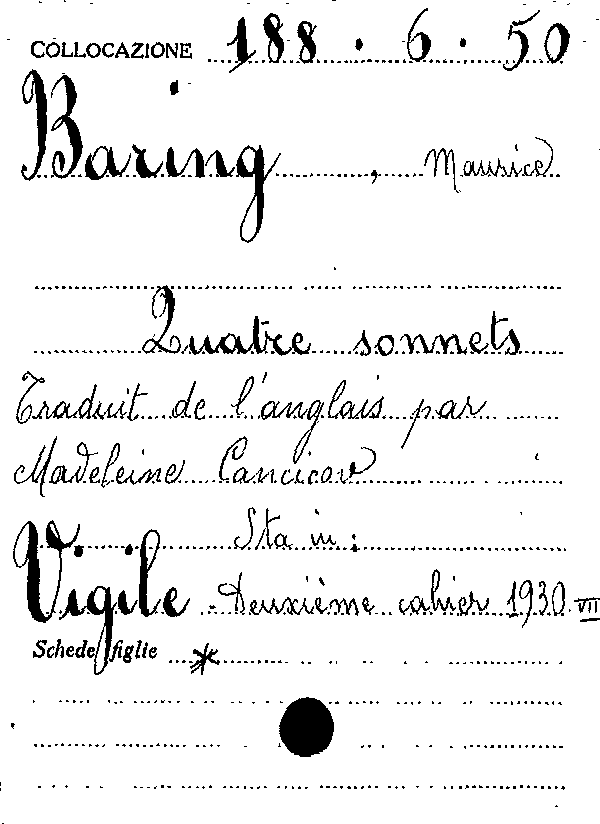 COLLOCAZIONE 188.6.50
Baring, Maurice
Quatre sonnets
Traduit de l'anglais par
Madeleine Cancicov
Sta in:
Vigile. Deuxième cahier 1930 VII
Schede figlie *